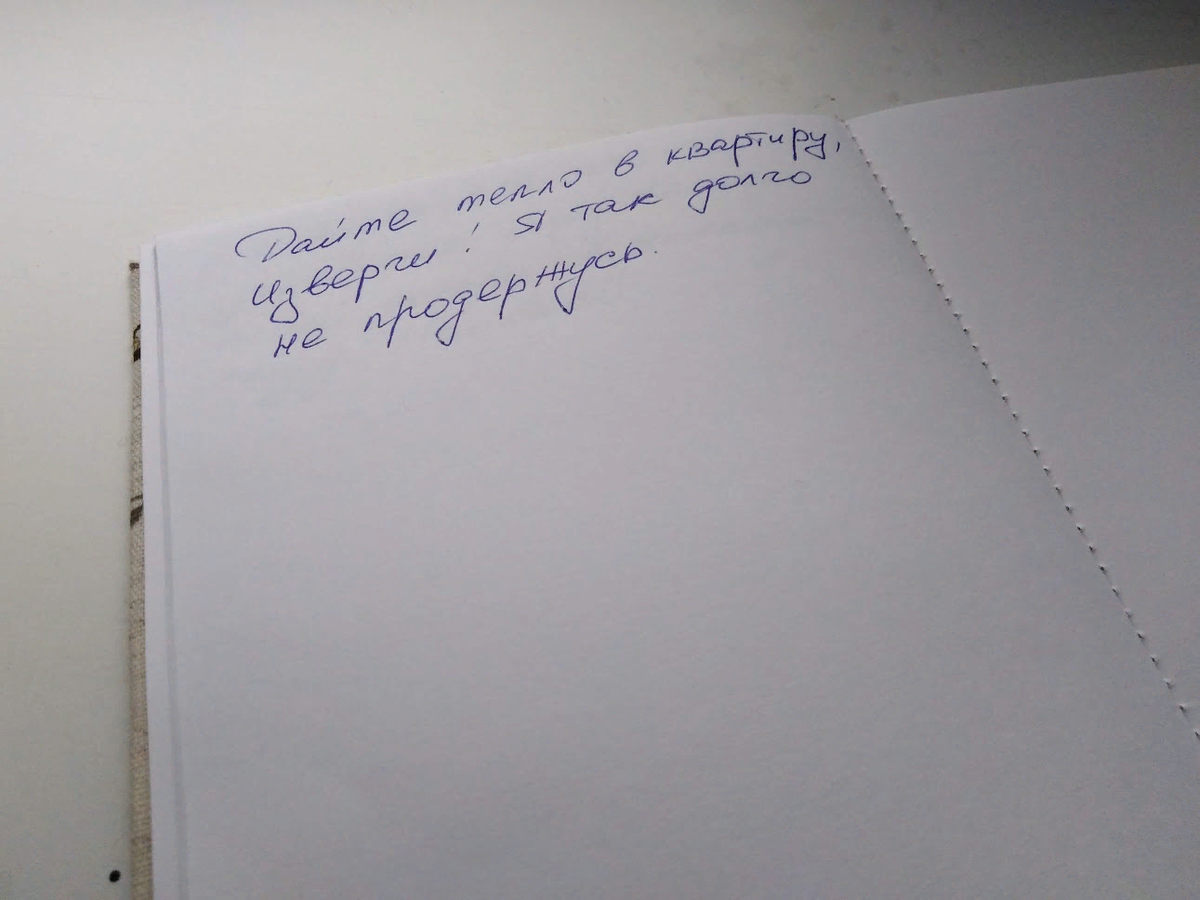 Дайте тепло в квартиру,
изверги! Я так долго
не продержусь.